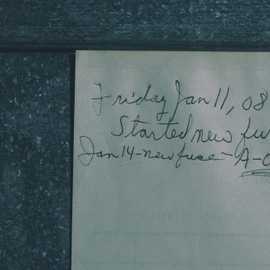 Friday Jan 11, 08
Started new fu
Jan 14-new fuse-A-O